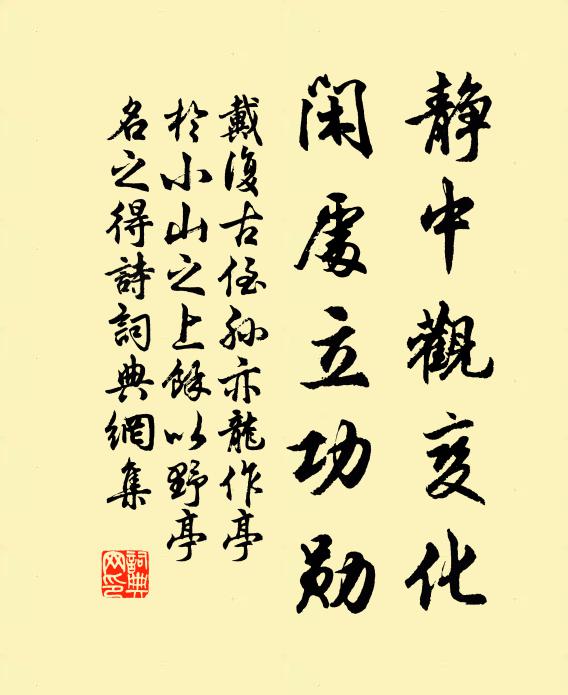 靜中觀变化
閑處立功勋
戴復古侄孙亦龍作亭
於小山之上餘以野亭
名之得詩詞典網集
詞典網印